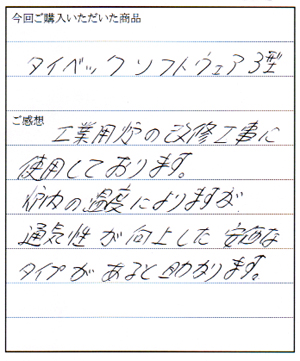 今回ご購入いただいた商品
タイベックソフトウェア3型
ご感想
工業用炉の改修工事に
使用しております。
炉内の温度によりますが
通気性が向上した安価な
タイプがあると助かります。